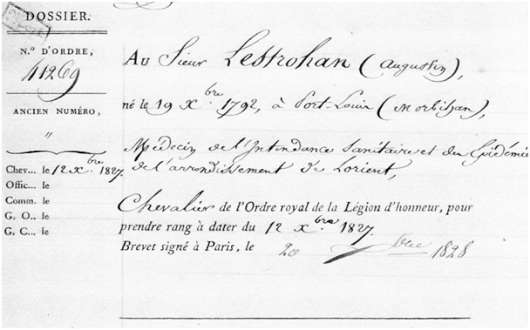 DOSSIER.
N.º D'ORDRE,
41269
ANCIEN NUMÉRO,
"
Chev... le 12 Xbre 1827.
Offic... le
Comm. le
G. O.. le
G. C... le
Au Sieur Lestrohan (Augustin),
né le 19 Xbre 1792, à Port-Louis (Morbihan),
Médecin de l'Intendance Sanitaire et des Epidémies
de l'arrondissement de Lorient,
Chevalier de l'Ordre royal de la Légion d'honneur, pour
prendre rang à dater du 12 Xbre 1827.
Brevet signé à Paris, le 20 1828